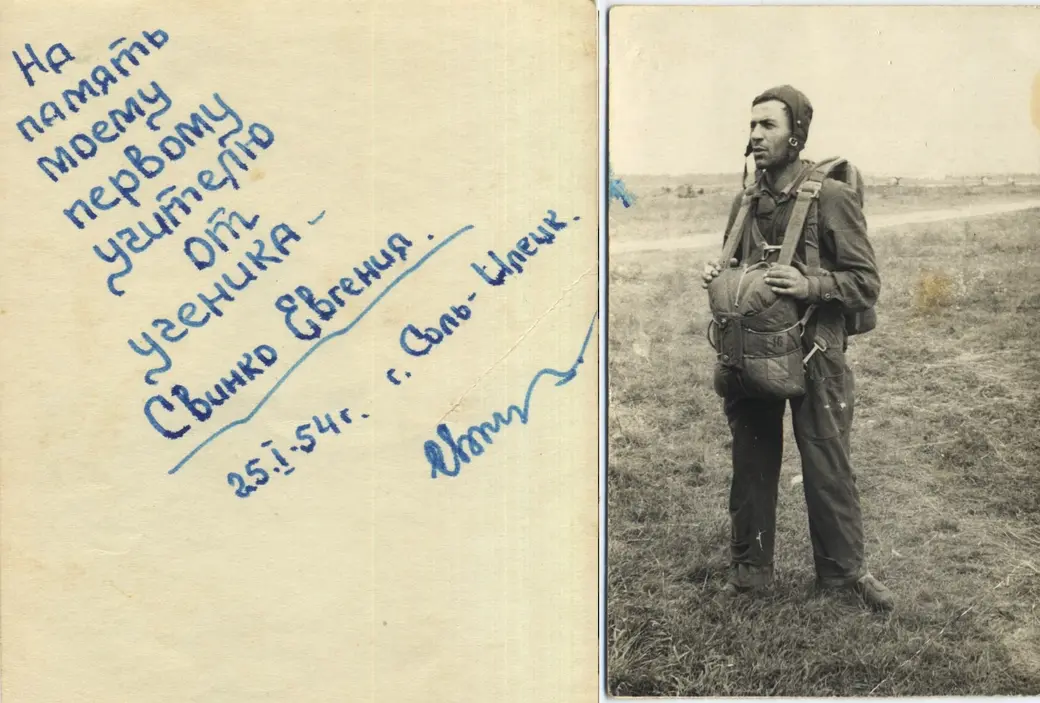 На
память
моему
первому
учителю
от
ученика -
Свинко Евгения.
25.I.54г.
г. Соль-Илецк.
16